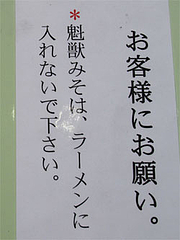 お客様にお願い。
*魁獣みそは、ラーメンに
入れないで下さい。